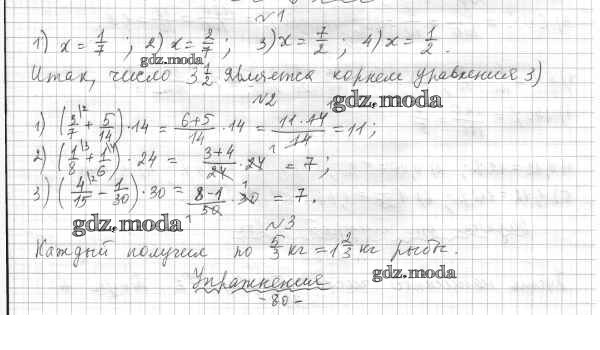 №1
1) x = 1/7 ; 2) x = 2/7 ; 3) x = 7/2 ; 4) x = 1/2 .
gdz.moda
Итак, число 3 1/2 является корнем уравнения 3)
№2
gdz.moda
1) (3/7 + 5/14) · 14 = 6+5/14 · 14 = 11·14/14 = 11;
2) (1/8 + 1/6) · 24 = 3+4/24 · 24 = 7;
3) (4/15 - 1/30) · 30 = 8-1/30 · 30 = 7.
gdz.moda
№3
Каждый получил по 5/3 кг = 1 2/3 кг рыбы.
gdz.moda
Упражнения
- 80 -